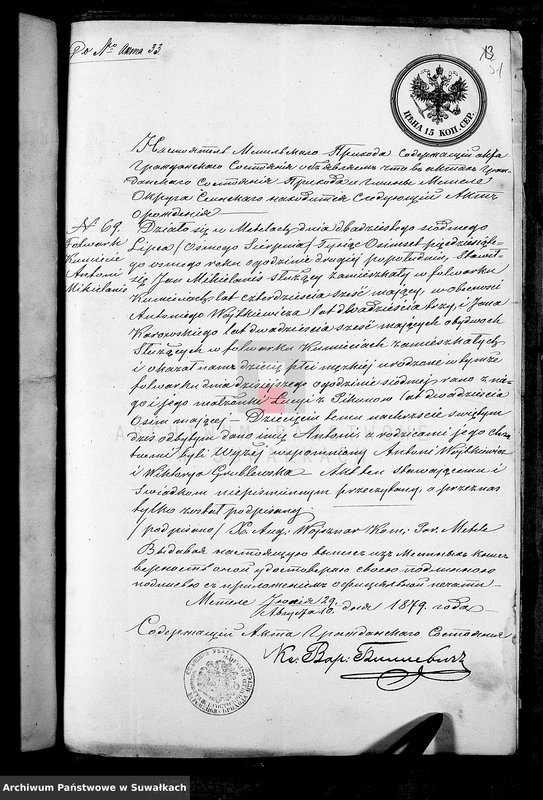 До № Акта 33.
13
51
ЦѢНА 15 КОП. СЕР.
Настоятель Метельскаго Прихода Содержащій акта
Гражданскаго Состоянія объявляетъ что въ актахъ Граж-
данскаго Состоянія Прихода и гмины Метеле
Округа Сейнскаго находится следующій Актъ
о рожденіи
№ 69.
Folwark
Kumiecie
Antoni
Mikielanis
Działo się w Metelach dnia dwudziestego siódmego
Lipca (Ósmego Sierpnia) Tysiąc Ośmset pięćdziesiąte-
go ósmego roku o godzinie drugiej popołudniu, Stawił
się Jan Mikielanis służący zamieszkały w folwarku
Kumieciach, lat czterdzieścia sześć mający, w obecności
Antoniego Wojtkiewicza lat dwadzieścia trzy, i Jana
Karowskiego lat dwadzieścia sześć mających obydwóch
Służących w folwarku Kumieciach zamieszkałych
i okazał nam dziecię płci męzkiej urodzone w tymże
folwarku dnia dzisiejszego o godzinie siódmej rano z nie-
go i jego małżonki Łucyi z Pikunow lat dwadzieścia
Ośm mającej — Dziecięciu temu na chrzcie świętym
dziś odbytym dano imię Antoni a rodzicami jego chrze-
stnemi byli Wyżej wspomniany Antoni Wojtkiewicz
i Wiktorya Grublewska Akt ten Stawającemu i
Świadkom niepiśmiennym przeczytany, a przez nas
tylko został podpisany.
/podpisano/ X. Aug: Wojsznar Kom: Par. Metele
Выдавая настоящую выпись изъ Метельскихъ книгъ
верность оной удостоверяю своею подлинною
подписью съ приложеніемъ официальной печати
Метеле Іюля 29 / Августа 10. дня 1879 года
Содержащій Акта Гражданскаго Состоянія
Кс. Вар:
ARCHIWUM PAŃSTWOWE
W SUWAŁKACH
Archiwum Państwowe w Suwałkach